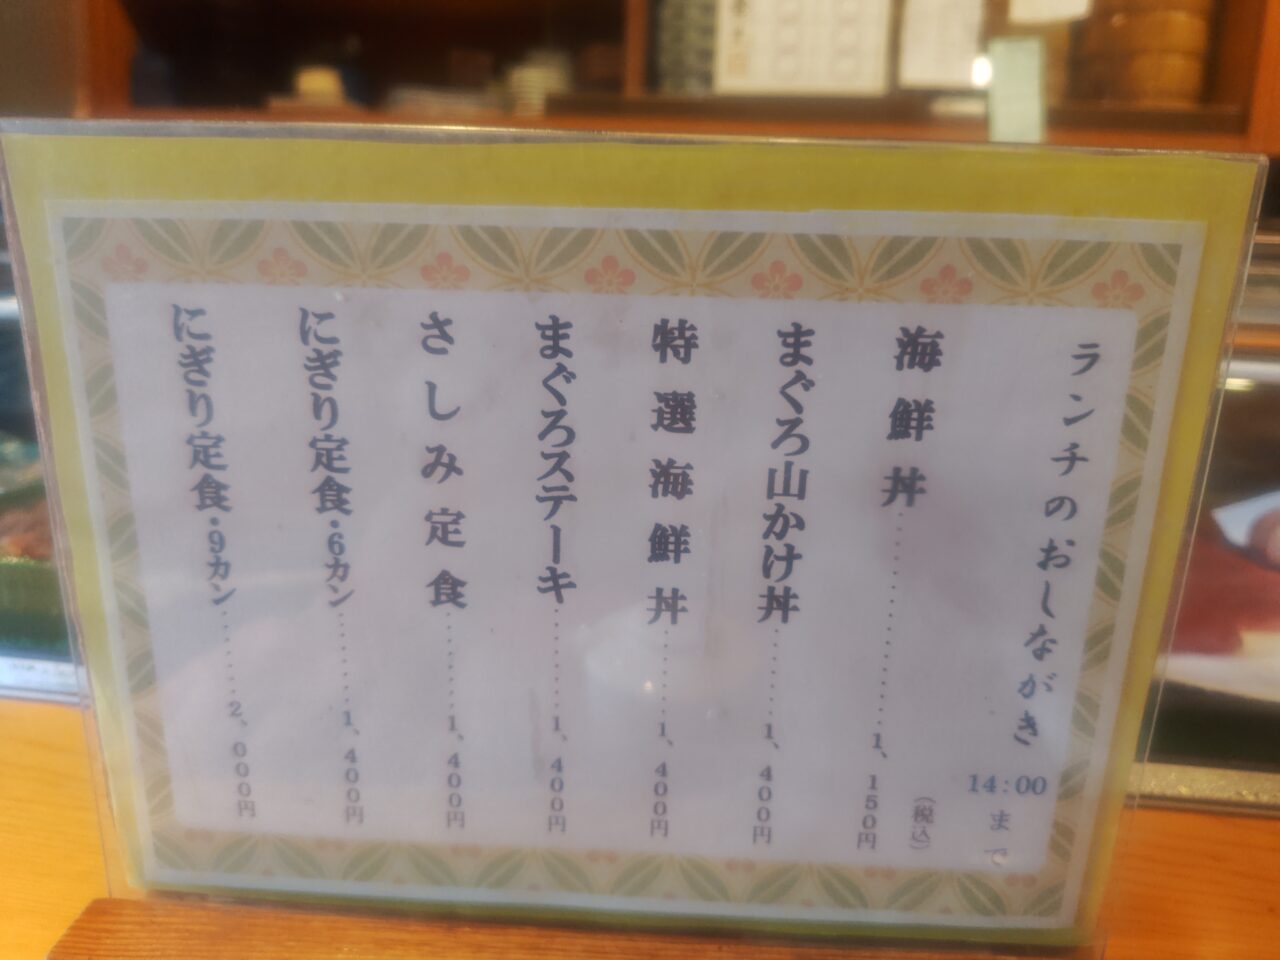 ランチのおしながき 14:00まで
(税込)
海鮮丼………1、150円
まぐろ山かけ丼………1、400円
特選海鮮丼………1、400円
まぐろステーキ………1、400円
さしみ定食………1、400円
にぎり定食・6カン………1、400円
にぎり定食・9カン………2、000円